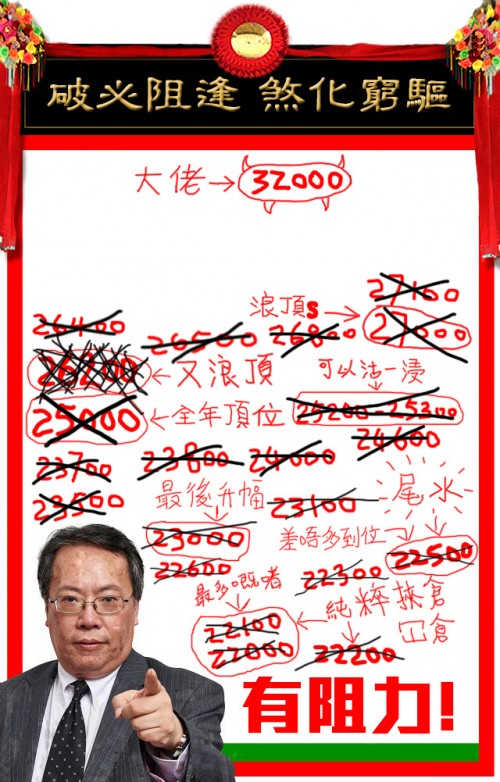 驅窮化煞 逢阻必破
大佬→32000
27100
浪頂s→27000
26400
26500
26800
←又浪頂
可以沽一浸
25000←全年頂位
25200-25300
24600
23700
23800
24000
23500
最後升幅
23100
尾水
23000
差唔多到位
22500
22600
22300
最多嘅啫
純粹挾倉
冚倉
22100
22000
22200
有阻力!